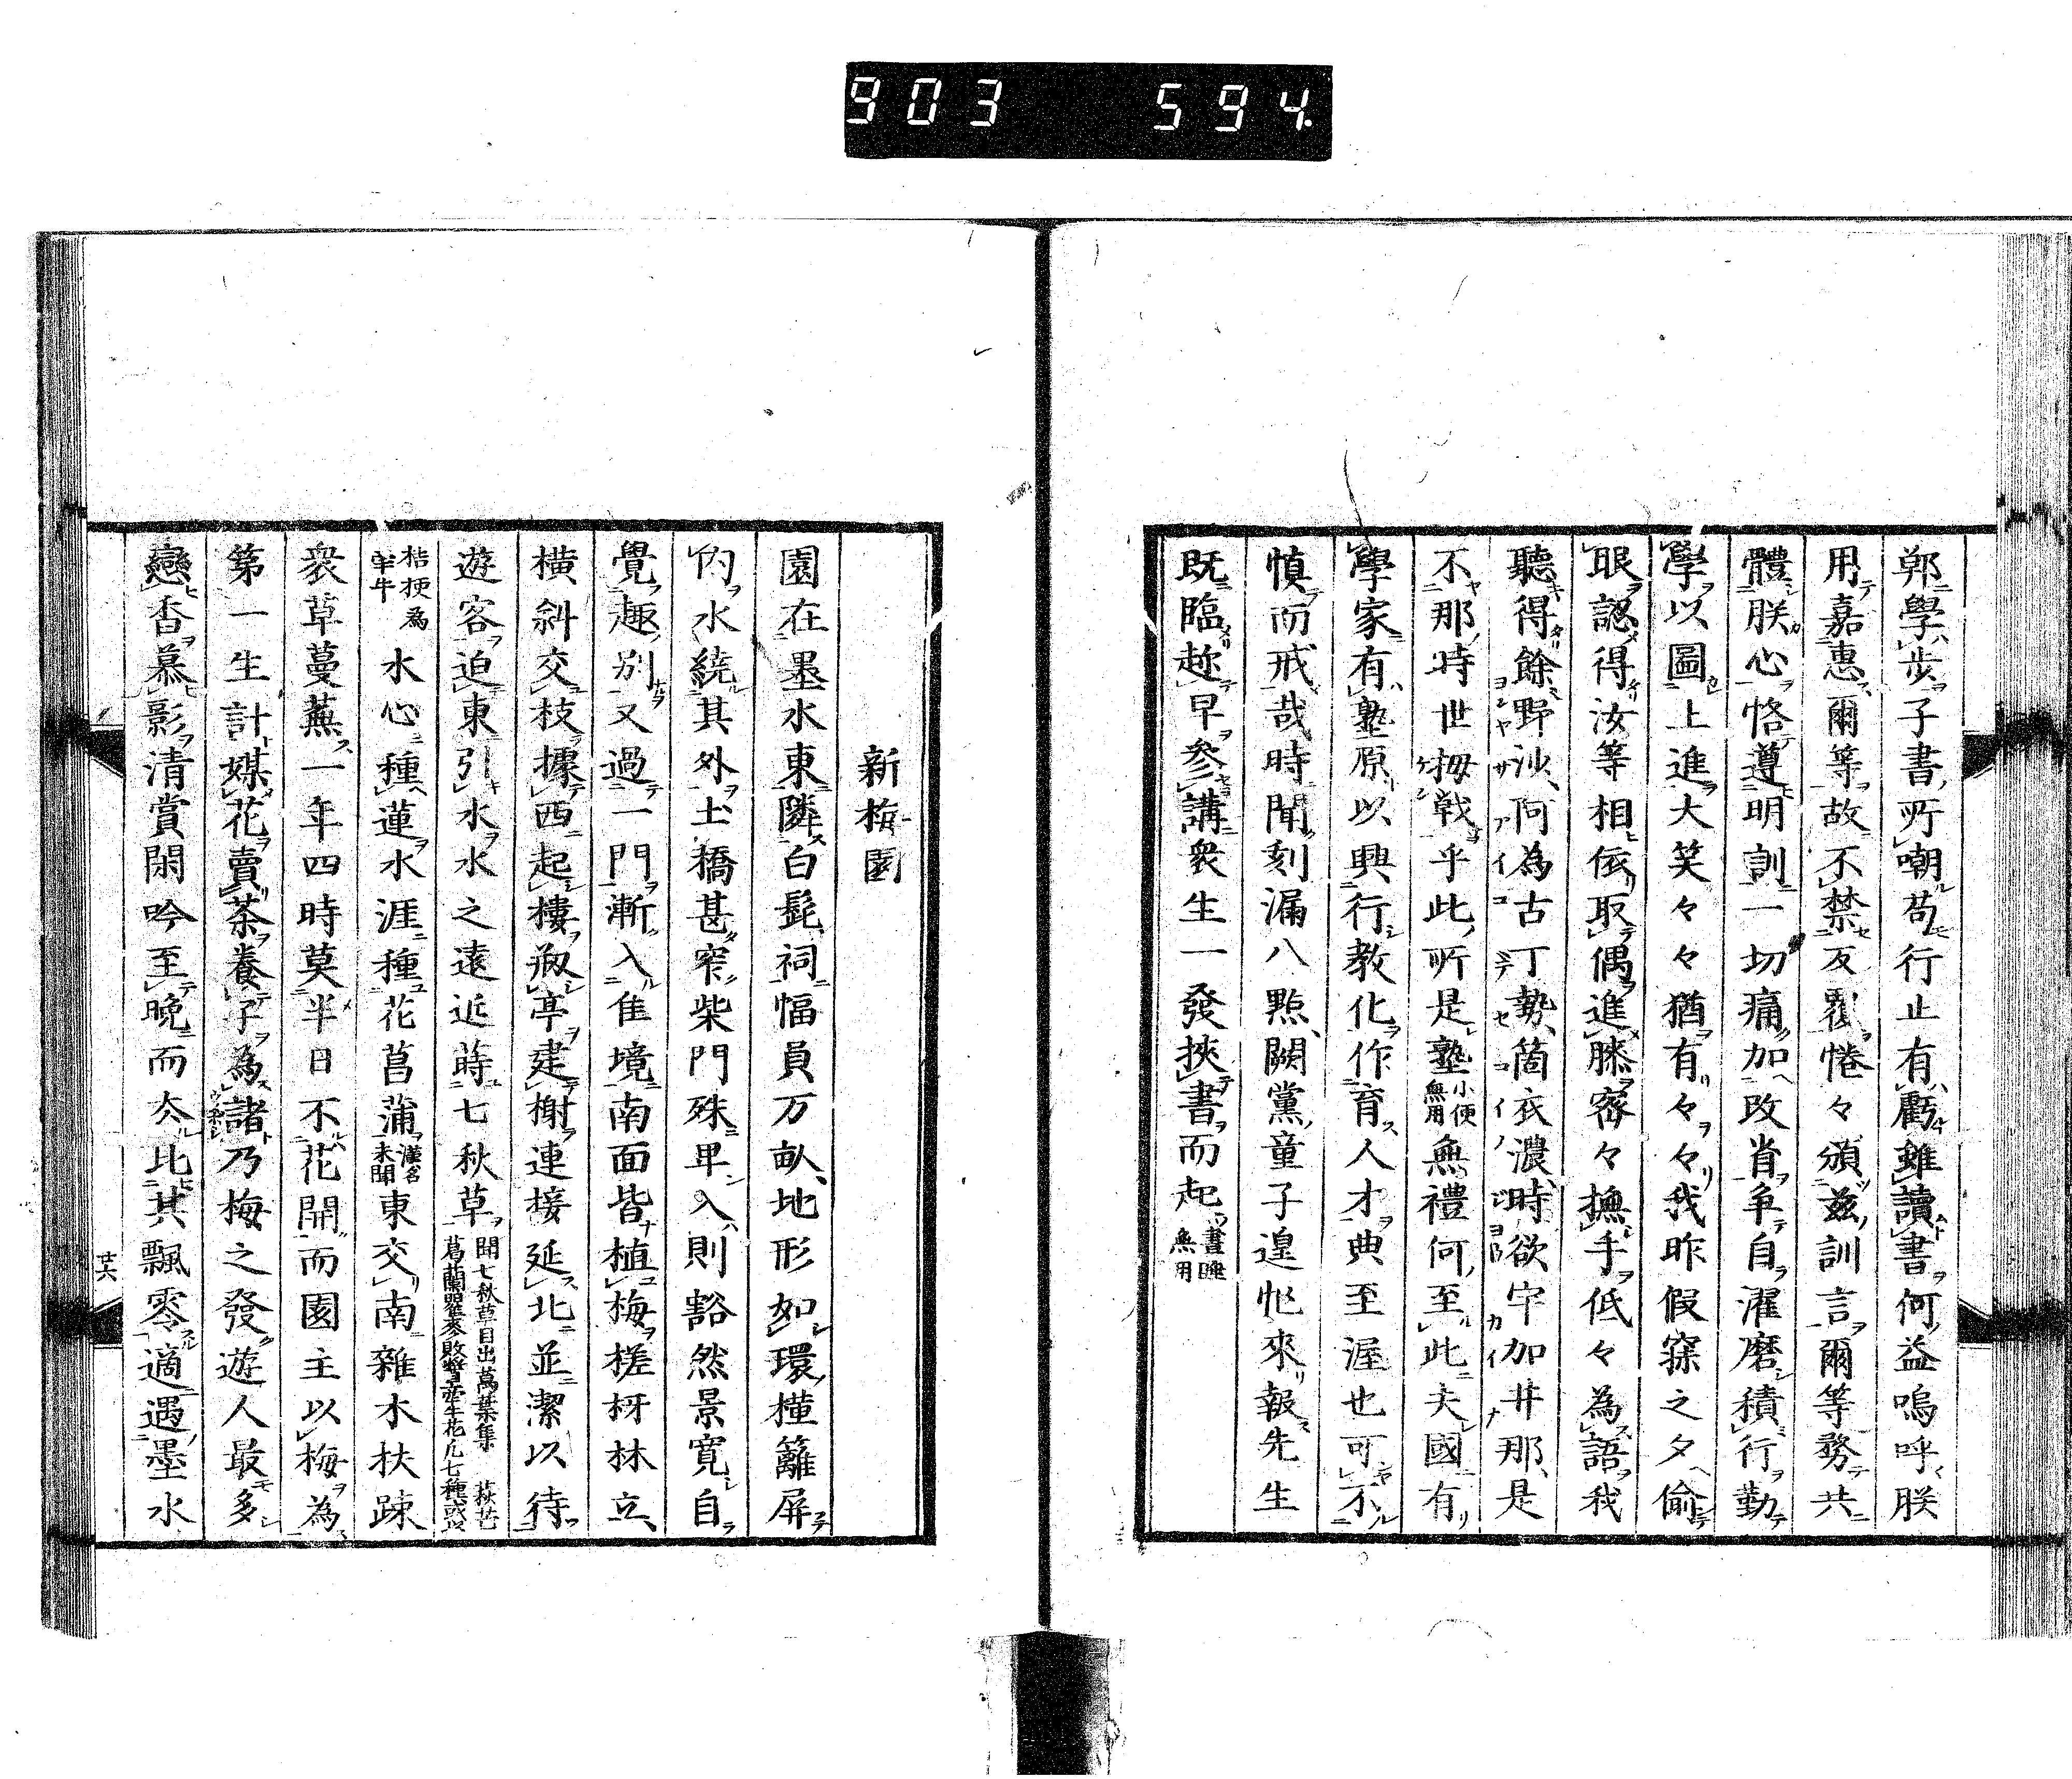 903 594
鄭學步子書所嘲苟行止有虧雖讀書何益嗚呼朕
用嘉惠爾等故不禁反覆惓々頒茲訓言爾等務共
體朕心恪遵明訓一切痛加改省爭自濯磨積行勤
學以圖上進大笑々々猶有々々我昨假寐之夕偷
眼認得汝等相依取偶進膝密々撫手低々為語我
聽得餘野沙阿為古丁勢箇衣濃時欲宇加井那是
不那時世拇戟乎此所是塾小便無用無禮何至此夫國有
學家有塾原以興行教化作育人才典至渥也可不
慎而戒哉時聞刻漏八點闕黨童子遑忙來報先生
既臨趂早參講衆生一發挾書而起晝睡無用
新梅園
園在墨水東隣白髭祠幅員万畝地形如環槿籬屏
內水繞其外土橋甚窄柴門殊卑入則豁然景寬自
覺趣別又過一門漸入佳境南面皆植梅槎枒林立
橫斜交枝據西起樓瓾亭建榭連接延北並潔以待
遊客迫東引水水之遠近蒔七秋草聞七秋草目出萬葉集 萩芒葛蘭瞿麥敗醬牽牛花凡七種或以
桔梗爲牽牛 水心種蓮水涯種花菖蒲漢名未聞東交南雜木扶疎
衆草蔓蕪一年四時莫半日不花開而園主以梅為
第一生計媒花賣茶養子為諸乃梅之發遊人最多
戀香慕影清賞閑吟至晚而厺比其飄零適遇墨水
廿六